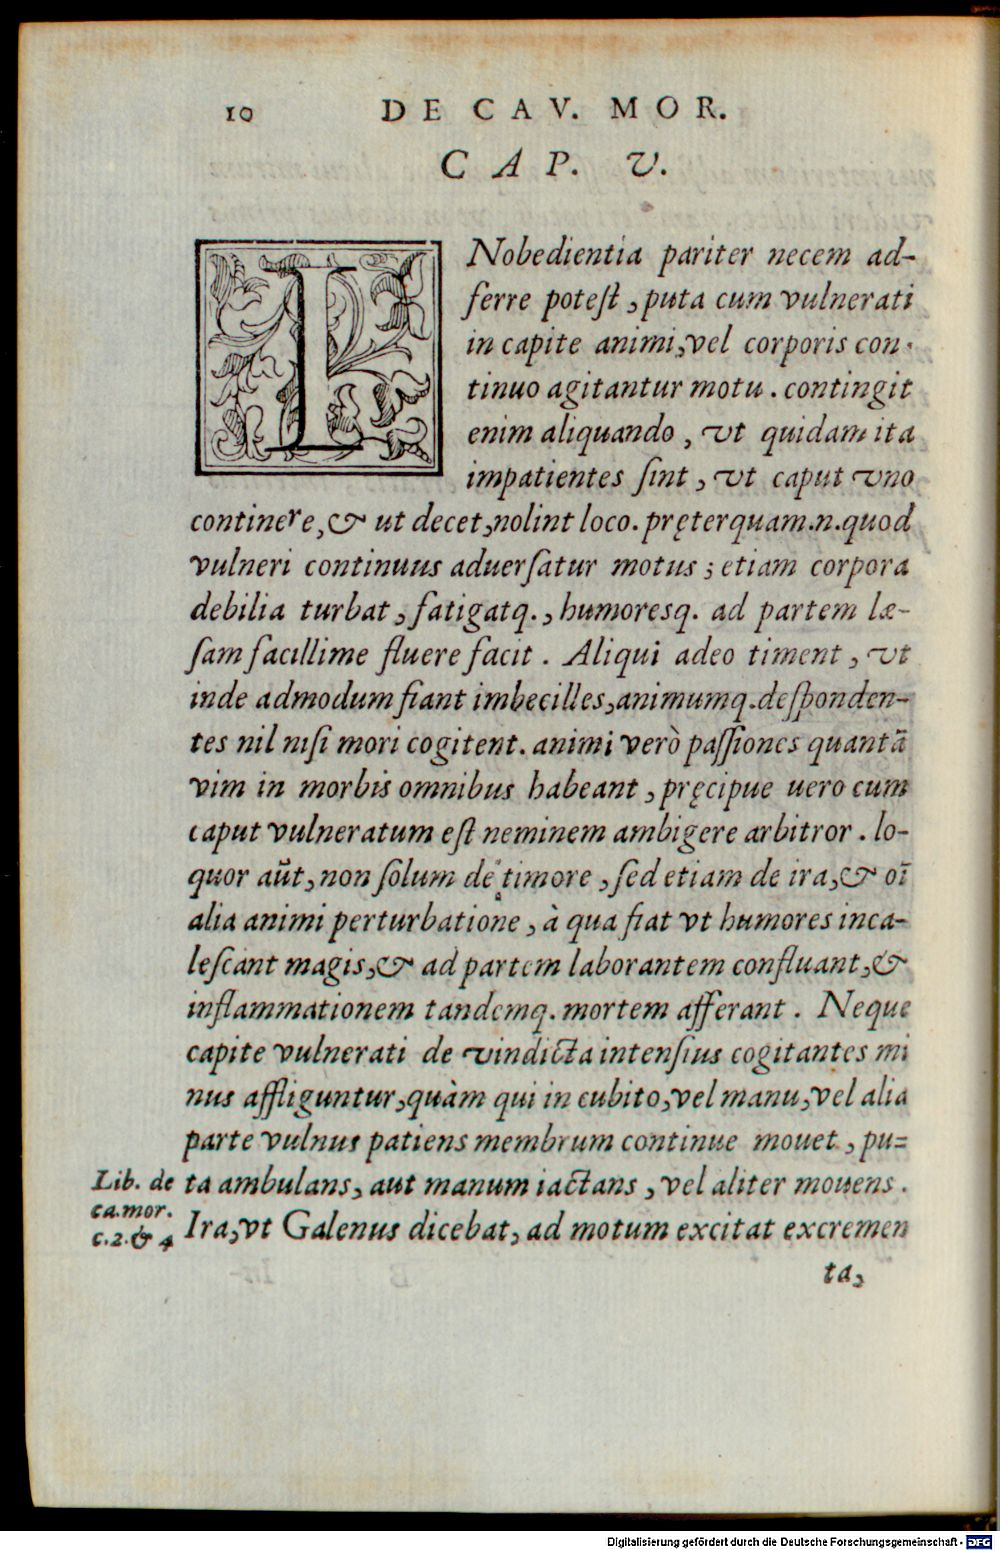 10 DE CAV. MOR.
CAP. V.
INobedientia pariter necem ad-
ferre potest, puta cum vulnerati
in capite animi, vel corporis con-
tinuo agitantur motu. contingit
enim aliquando, vt quidam ita
impatientes sint, vt caput vno
continere, & ut decet, nolint loco. pręterquam.n.quod
vulneri continuus aduersatur motus; etiam corpora
debilia turbat, fatigatq., humoresq. ad partem læ-
sam facillime fluere facit. Aliqui adeo timent, vt
inde admodum fiant imbecilles, animumq. desponden-
tes nil nisi mori cogitent. animi verò passiones quantã
vim in morbis omnibus habeant, pręcipue uero cum
caput vulneratum est neminem ambigere arbitror. lo-
quor aũt, non solum de timore, sed etiam de ira, & oĩ
alia animi perturbatione, à qua fiat vt humores inca-
lescant magis, & ad partem laborantem confluant, &
inflammationem tandemq. mortem afferant. Neque
capite vulnerati de vindicta intensius cogitantes mi
nus affliguntur, quàm qui in cubito, vel manu, vel alia
parte vulnus patiens membrum continue mouet, pu-
ta ambulans, aut manum iactans, vel aliter mouens.
Ira, vt Galenus dicebat, ad motum excitat excremen
ta,
Lib. de
ca.mor.
c.2.& 4
Digitalisierung gefördert durch die Deutsche Forschungsgemeinschaft - DFG